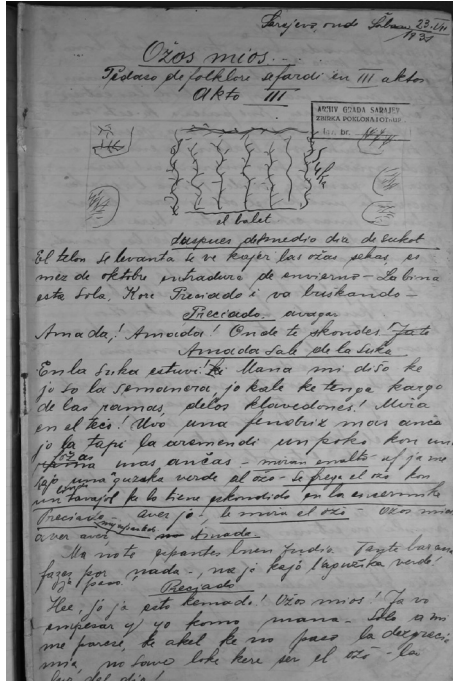 Sarajevo, 23. IX
1931
Ožos mios...
Pedaso de folklore sefardi en III aktos
Akto III
ARHIV GRADA SARAJEV
ZBIRKA POKLONA I OTKUP
br.
suka
el balet
despues de medio dia de sukot
El telon se levanta se ve kajer las ožas sekas, es
mez de oktobre entradura de envierno - La bina
esta sola. Kore Preciado i va buskando -
Preciado. avagar
Amada! Amada! Onde te skondes!
Amada sale de la suka
En la suka estuvi! Ke Mama mi dišo ke
jo so la semanera, jo kale ke tenga kargo
de las ramas, de los klavedones! Mira
en el teči! Uvo una fendriz mas anča
jo la tapi la aremendi un poko kon un
ožas mas ančas - miran enalto - uf ja me
kajo una guzska verde al ožo - se frega el ožo kon
un tavajol ke lo tiene eskondido en la
Preciado - aver jo! le mira el ožo - ožos mios
aver aver Amada
Ma no te espantes buen Tante
fazes por nada - no ja kajo la verde!
ja paso! Preciado
Hee, jo ja esto kemado! Ožos mios! Ja vo
empesar y yo komo mama - Solo a mi
me parese, ke akel ke no paso la dezgracia
mia, no save loke kere ser el ožo - la
luz del dia!